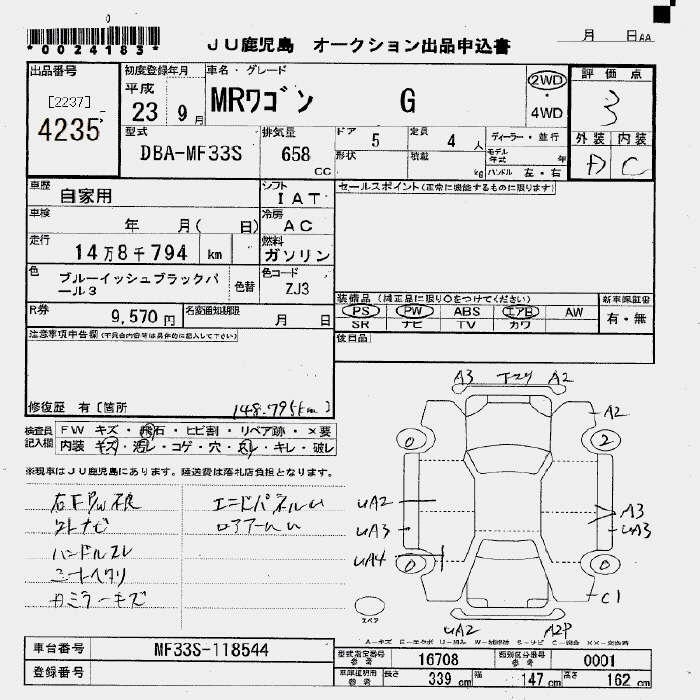 *00024183*
JU鹿児島 オークション出品申込書
月 日AA
出品番号
[2237]
4235
初度登録年月
平成
23 9月
車名・グレード
MRワゴン G
2WD
・
4WD
評価点
3
外装 内装
A C
型式
DBA-MF33S
排気量
658
CC
ドア 5
定員 4 人
ディーラー・並行
形状
積載 kg
モデル年式 年
ハンドル 左・右
車歴
自家用
シフト
IAT
セールスポイント(正常に機能するものに限ります)
車検
年 月( 日)
冷房
AC
走行
14万8千794 km
燃料
ガソリン
色
ブルーイッシュブラックパ
ール3
色替
色コード
ZJ3
装備品(純正品に限り〇をつけてください)
PS PW ABS エアB AW
SR ナビ TV カワ
新車保証書
有・無
R券
9,570円
名変通知期限
月 日
後日品
注意事項申告欄(不具合内容等は具体的に記入して下さい)
修復歴 有〔箇所
148.795km 〕
検査員
記入欄
FW キズ・飛石・ヒビ割・リペア跡・×要
内装 キズ・汚レ・コゲ・穴・スレ・キレ・破レ
※現車はJU鹿児島にあります。陸送費は落札店負担となります。
右FPW不良
外ナビ
ハンドルスレ
シートヘタリ
エンドパネルW
ロアアームW
A3 下スリ A2
A2
0
2
UA2
UA3
UA4
A3
UA3
0
0
C1
スペア
UA2 A2P
車台番号
MF33S-118544
登録番号
型式指定番号
参考
16708
類別区分番号
参考
0001
車庫証明用
参考
長さ 339 cm
幅 147 cm
高さ 162 cm